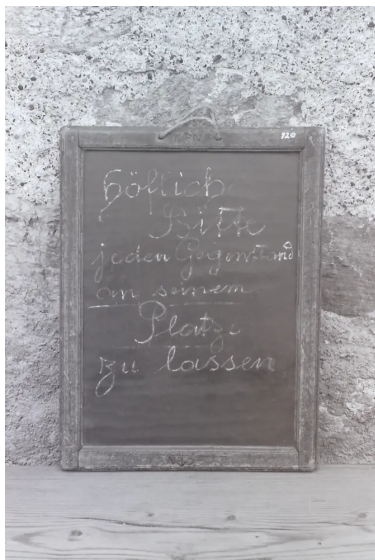 120
Höfliche
Bitte
jeden Gegenstand
an seinem
Platze
zu lassen